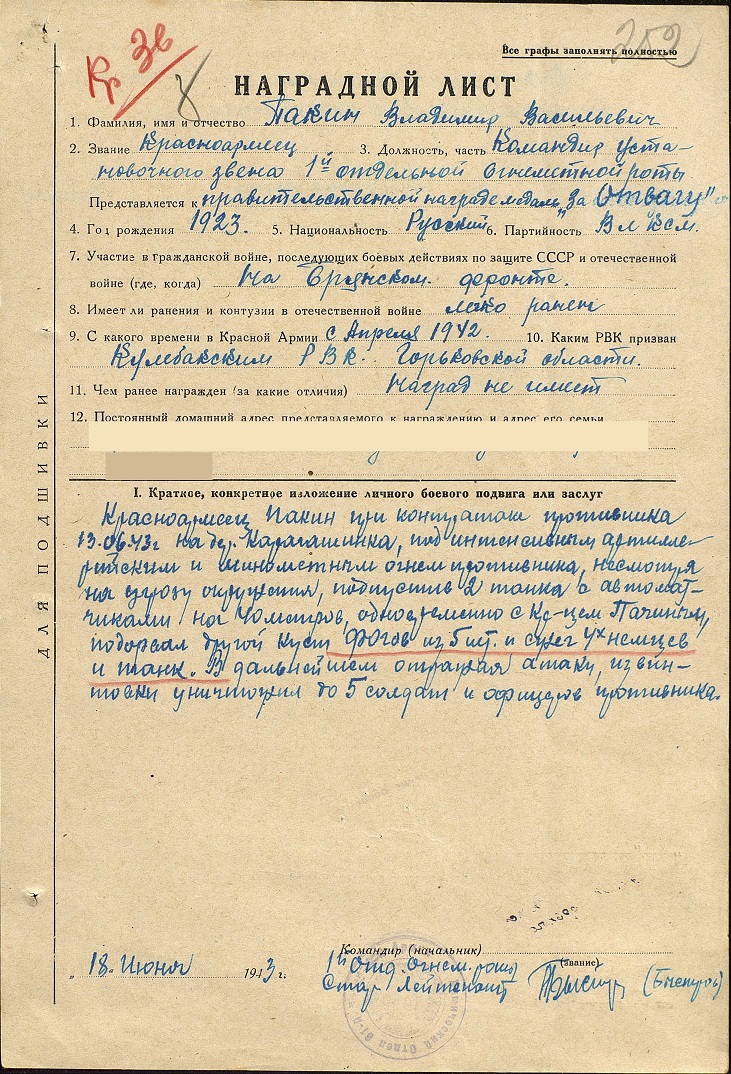 Кр Зв
252
Все графы заполнять полностью
НАГРАДНОЙ ЛИСТ
1. Фамилия, имя и отчество Пакин Владимир Васильевич
2. Звание Красноармеец 3. Должность, часть Командир уста-
новочного звена 1й отдельной огнеметной роты
Представляется к правительственной награде медаль „За Отвагу"
4. Год рождения 1923. 5. Национальность Русский 6. Партийность ВлКсм.
7. Участие в гражданской войне, последующих боевых действиях по защите СССР и отечественной
войне (где, когда) На Брянском фронте.
8. Имеет ли ранения и контузии в отечественной войне легко ранен
9. С какого времени в Красной Армии с Апреля 1942. 10. Каким РВК призван
Кулебакским РВК. Горьковской области.
11. Чем ранее награжден (за какие отличия) Наград не имеет
12. Постоянный домашний адрес представляемого к награждению и адрес его семьи
I. Краткое, конкретное изложение личного боевого подвига или заслуг
Красноармеец Пакин при контратаке противника
13.06.43г на дер. , под интенсивным артилле-
рийским и минометным огнем противника, несмотря
на угрозу окружения, подпустив 2 танка с автомат-
чиками на метров, одновременно с Кр-цем Пачиным,
подорвал другой куст ФОГов из 5 шт. и сжег 4х немцев
и танк. В дальнейшем отражая атаки, из вин-
товки уничтожил до 5 солдат и офицеров противника.
ДЛЯ ПОДШИВКИ
Командир (начальник)
(звание)
„18. Июня 1943г.
1й Отд. Огнем. роты
Стар. Лейтенант (Быстров)